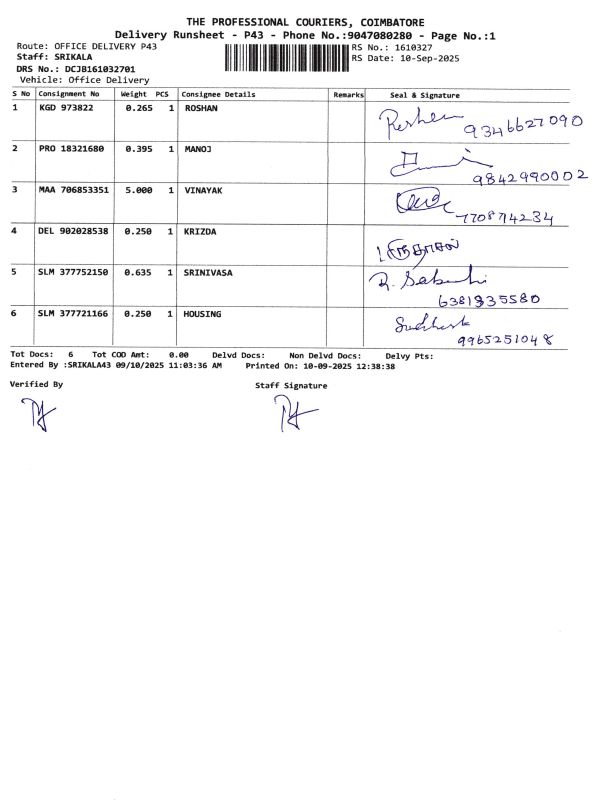 THE PROFESSIONAL COURIERS, COIMBATORE
Delivery Runsheet - P43 - Phone No.:9047080280 - Page No.:1
Route: OFFICE DELIVERY P43
RS No.: 1610327
Staff: SRIKALA
RS Date: 10-Sep-2025
DRS No.: DCJB161032701
Vehicle: Office Delivery
S No Consignment No Weight PCS Consignee Details Remarks Seal & Signature
1 KGD 973822 0.265 1 ROSHAN
9346627090
2 PRO 18321680 0.395 1 MANOJ
9842990002
3 MAA 706853351 5.000 1 VINAYAK
4 DEL 902028538 0.250 1 KRIZDA
5 SLM 377752150 0.635 1 SRINIVASA
6381935580
6 SLM 377721166 0.250 1 HOUSING
9965251048
Tot Docs: 6 Tot COD Amt: 0.00 Delvd Docs: Non Delvd Docs: Delvy Pts:
Entered By :SRIKALA43 09/10/2025 11:03:36 AM Printed On: 10-09-2025 12:38:38
Verified By Staff Signature